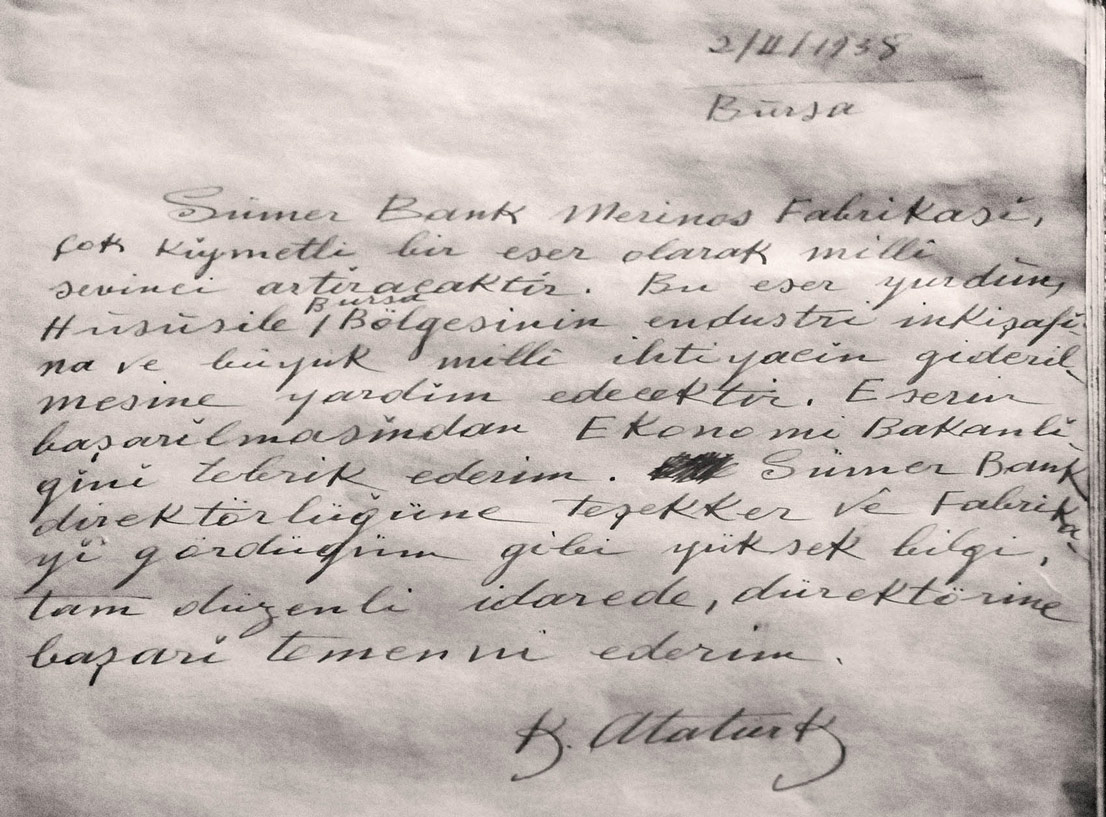 2/II/1938
Bursa
Sümer Bank Merinos Fabrikası,
çok kıymetli bir eser olarak millî
sevinci artıracaktır. Bu eser yurdun,
Hususile Bursa Bölgesinin endustri inkişafı-
na ve büyük millî ihtiyacın gideril-
mesine yardım edecektir. Eserin
başarılmasından Ekonomi Bakanlı-
ğını tebrik ederim. Sümer Bank
direktörlüğüne teşekker ve Fabrika-
yı gördüğüm gibi yüksek bilgi,
tam düzenli idarede, dürektörine
başarı temenni ederim.
K. Atatürk